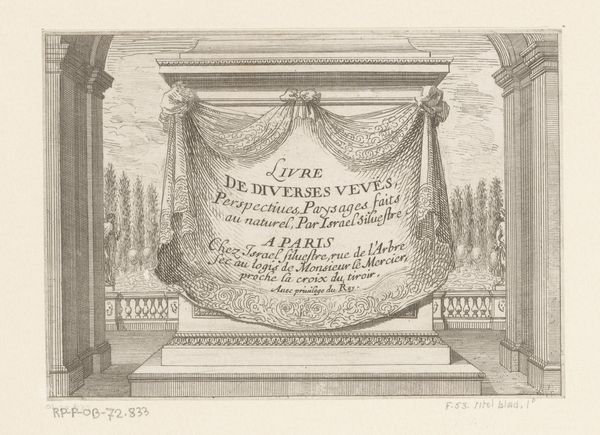 LIVRE
DE DIVERSES VEVËS,
Perspectiues, Paysages faits
au naturel, Par Israel Siluestre
A PARIS
Chez Israel siluestre, rue de l'Arbre
sec au logis de Monsieur le Mercier,
proche la croix du tiroir.
Auec priuilege du Roy.
RP-P-OB-72.833
F.53. titel blad, 1º